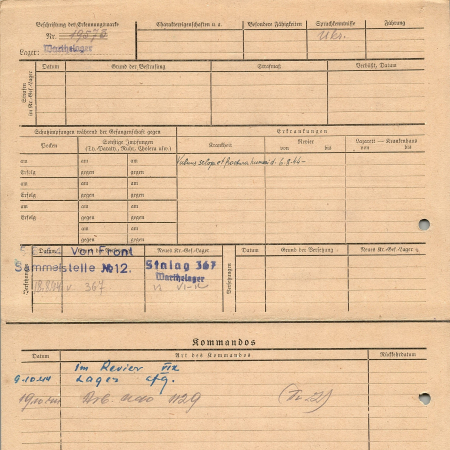 Beschriftung der Erkennungsmarke
Nr. 19576
Lager: Warthelager
Charaktereigenschaften u. a.
Besondere Fähigkeiten
Sprachkenntnisse
Ukr.
Führung
Strafen im Kr.-Gef.-Lager
Datum
Grund der Bestrafung
Strafmaß
Verbüßt, Datum
Schutzimpfungen während der Gefangenschaft gegen
Erkrankungen
Pocken
Sonstige Impfungen
(Ty.-Paraty., Ruhr, Cholera usw.)
Krankheit
Revier
von bis
Lazarett — Krankenhaus
von bis
am
am
am
Erfolg
gegen
gegen
am
am
am
Erfolg
gegen
gegen
am
am
am
Erfolg
gegen
gegen
am
am
gegen
gegen
am
am
gegen
gegen
6.8.44-
Versetzungen
Datum
Neues Kr.-Gef.-Lager
Versetzungen
Datum
Grund der Versetzung
Neues Kr.-Gef.-Lager
Von Front
Sammelstelle № 12.
Stalag 367
Warthelager
367
Kommandos
Datum
Art des Kommandos
Rückkehrdatum
Im Revier
9.10.44
Lager
19.10.44